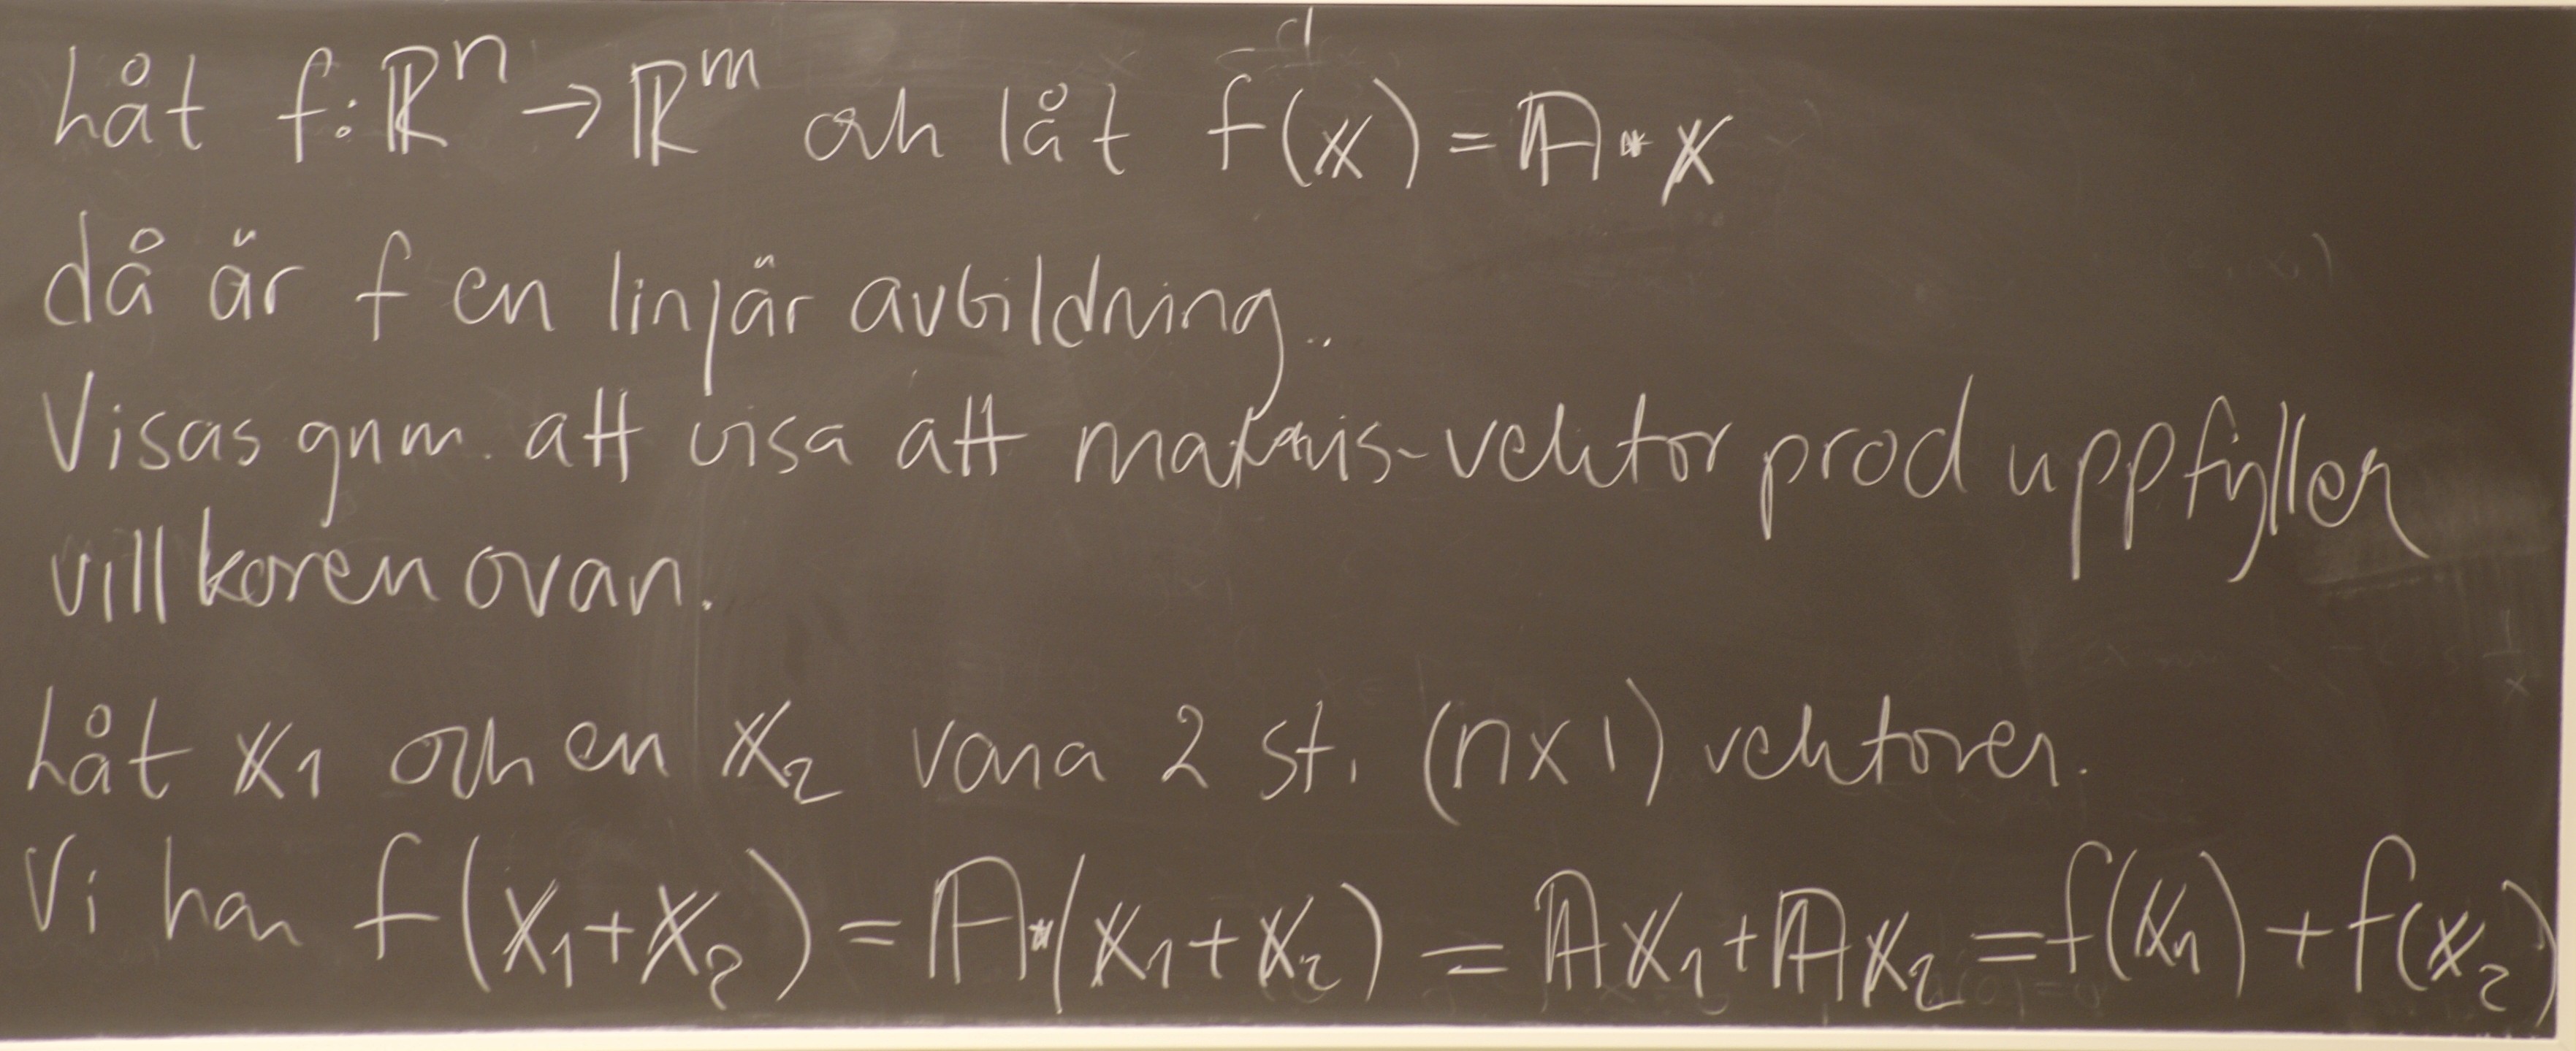 Låt f: ℝⁿ → ℝᵐ och låt f(𝕩) = 𝔸 · 𝕩
då är f en linjär avbildning.
Visas gnm. att visa att matris-vektor prod uppfyller
villkoren ovan.
Låt 𝕩₁ och en 𝕩₂ vara 2 st. (n×1) vektorer.
Vi har f(𝕩₁+𝕩₂) = 𝔸·(𝕩₁+𝕩₂) = 𝔸𝕩₁+𝔸𝕩₂ = f(𝕩₁) + f(𝕩₂)